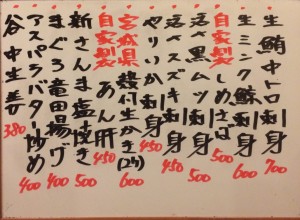 生鮪中トロ刺身 700
生ミンク鯨刺身 600
自家製しめさば 500
活〆黒ムツ刺身 500
活〆スズキ刺身 450
やりいか刺身 450
宮城県殻付生かき(2ケ) 600
自家製あん肝 450
新さんま塩焼き 500
まぐろ竜田揚げ 400
アスパラバター炒め 400
谷中生姜 380